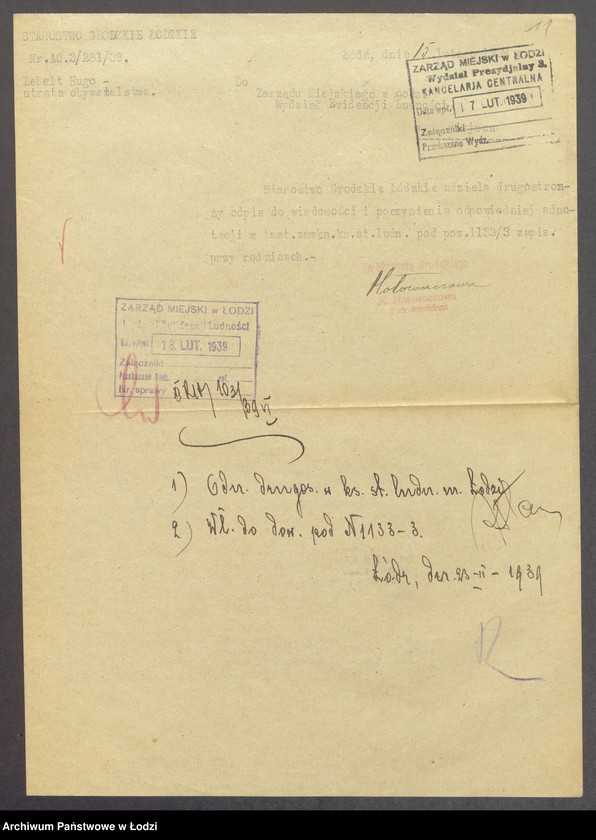 11
STAROSTWO GRODZKIE ŁÓDZKIE
Nr.AO.2/281/39.
Łódź, dnia 15
Hugo -
utrata obywatelstwa.
Do
Zarządu Miejskiego w
Wydział Ewidencji Ludności
ZARZĄD MIEJSKI w ŁODZI
Wydział Prezydjalny 3.
KANCELARJA CENTRALNA
Data wpł. 17 LUT. 1939
Załączniki
Przekazano Wydz.
Starostwo Grodzkie Łódzkie udziela drugostron-
ny odpis do wiadomości i poczynienia odpowiedniej adno-
tacji w ks.st.ludn. pod poz.1133/3 zapis.
przy rodzicach.-
ZARZĄD MIEJSKI w ŁODZI
Ewidencji Ludności
18 LUT. 1939
Załączniki
Nr. sprawy
1) Odn. drugos. w ks. st. ludn. m. Łodzi
2) Wł. do dow. pod N 1133-3.
Łódź, dn. 23-II-1939
R
Archiwum Państwowe w Łodzi